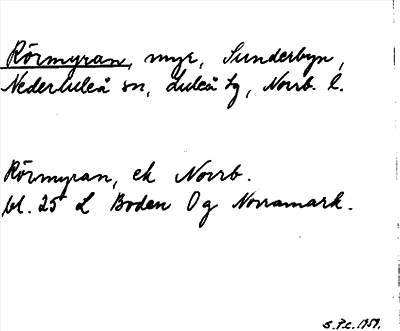 Rörmyran, myr, Sunderbyn,
Nederluleå sn, Luleå tg, Norrb. l.
Rörmyran, ek Norrb.
bl. 25 L Boden Og Norramark.
1959.